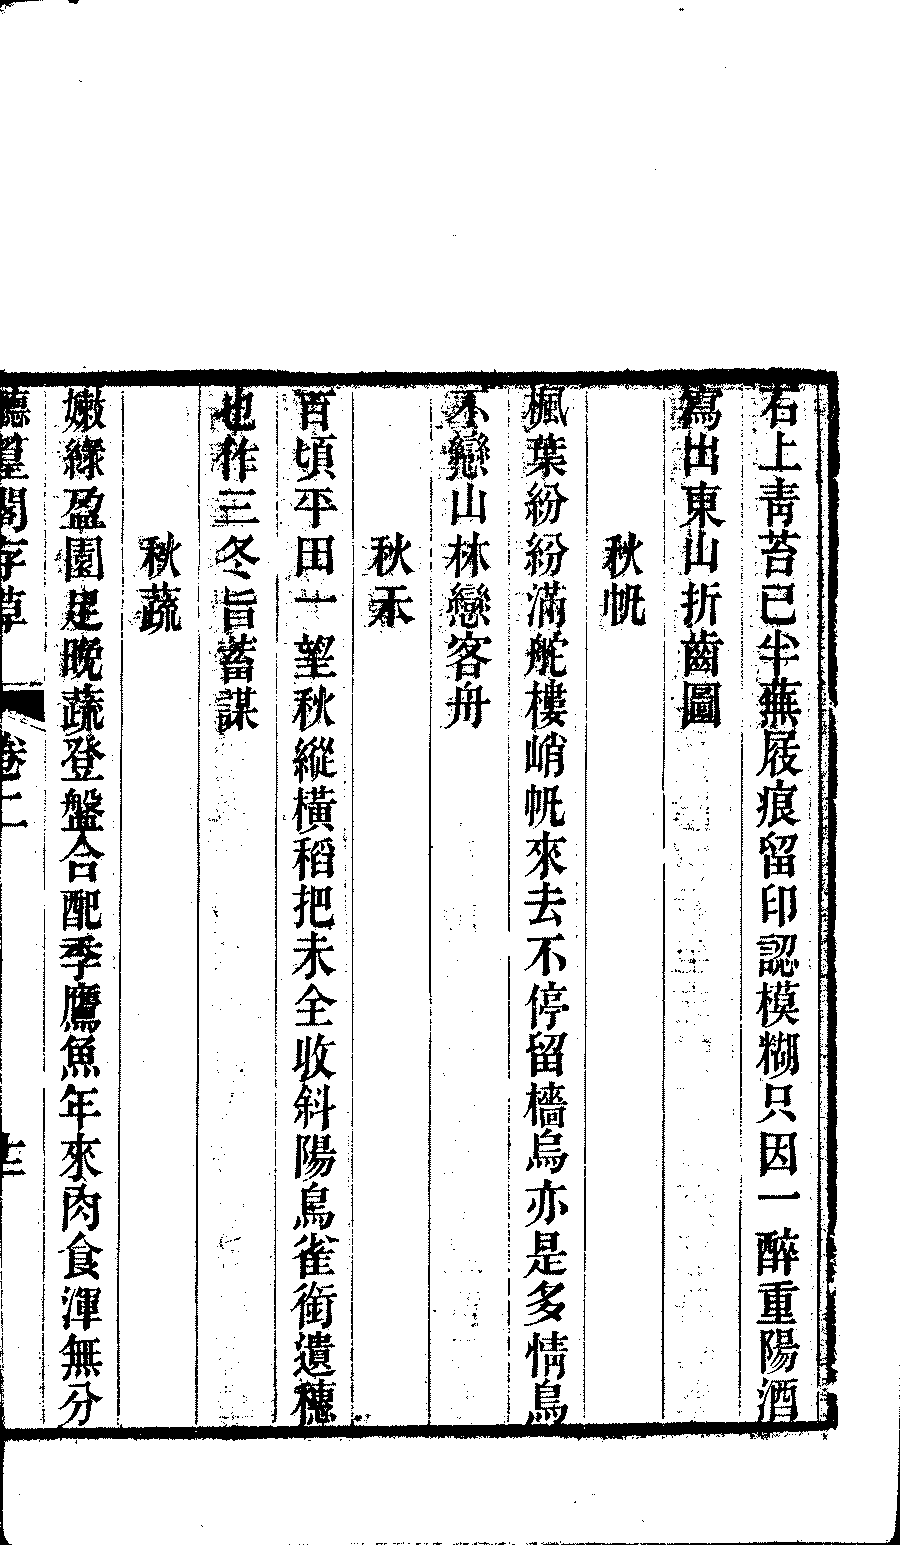 石上青苔已半蕪屐痕留印認模糊只因一醉重陽酒
寫出東山折齒圖
秋帆
楓葉紛紛滿舵樓峭帆來去不停留檣烏亦是多情鳥
不戀山林戀客舟
秋禾
百頃平田一望秋縱橫稻把未全收斜陽鳥雀銜遺穗
也作三冬旨蓄謀
秋蔬
嫩綠盈園是晚蔬登盤合配季鷹魚年來肉食渾無分
聽篁閣存草 卷二 十三